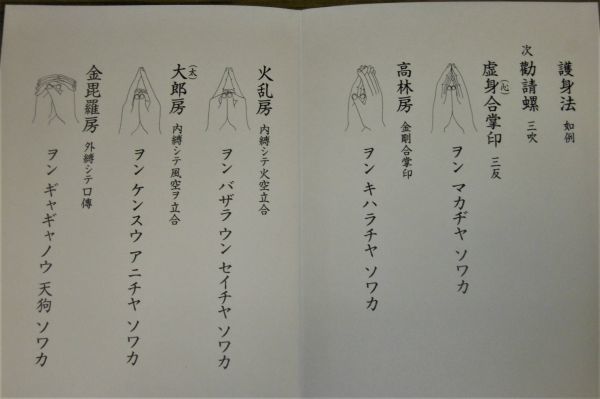 護身法 如例
次 勸請螺 三吹
虚身合掌印 三反
ヲン マカヂヤ ソワカ
高林房 金剛合掌印
ヲン キハラチヤ ソワカ
火乱房 内縛シテ火空立合
ヲン バザラ ウン セイチヤ ソワカ
大郎房 (太) 内縛シテ風空ヲ立合
ヲン ケンスウ アニチヤ ソワカ
金毘羅房 外縛シテ口傳
ヲン ギャギャノウ 天狗 ソワカ